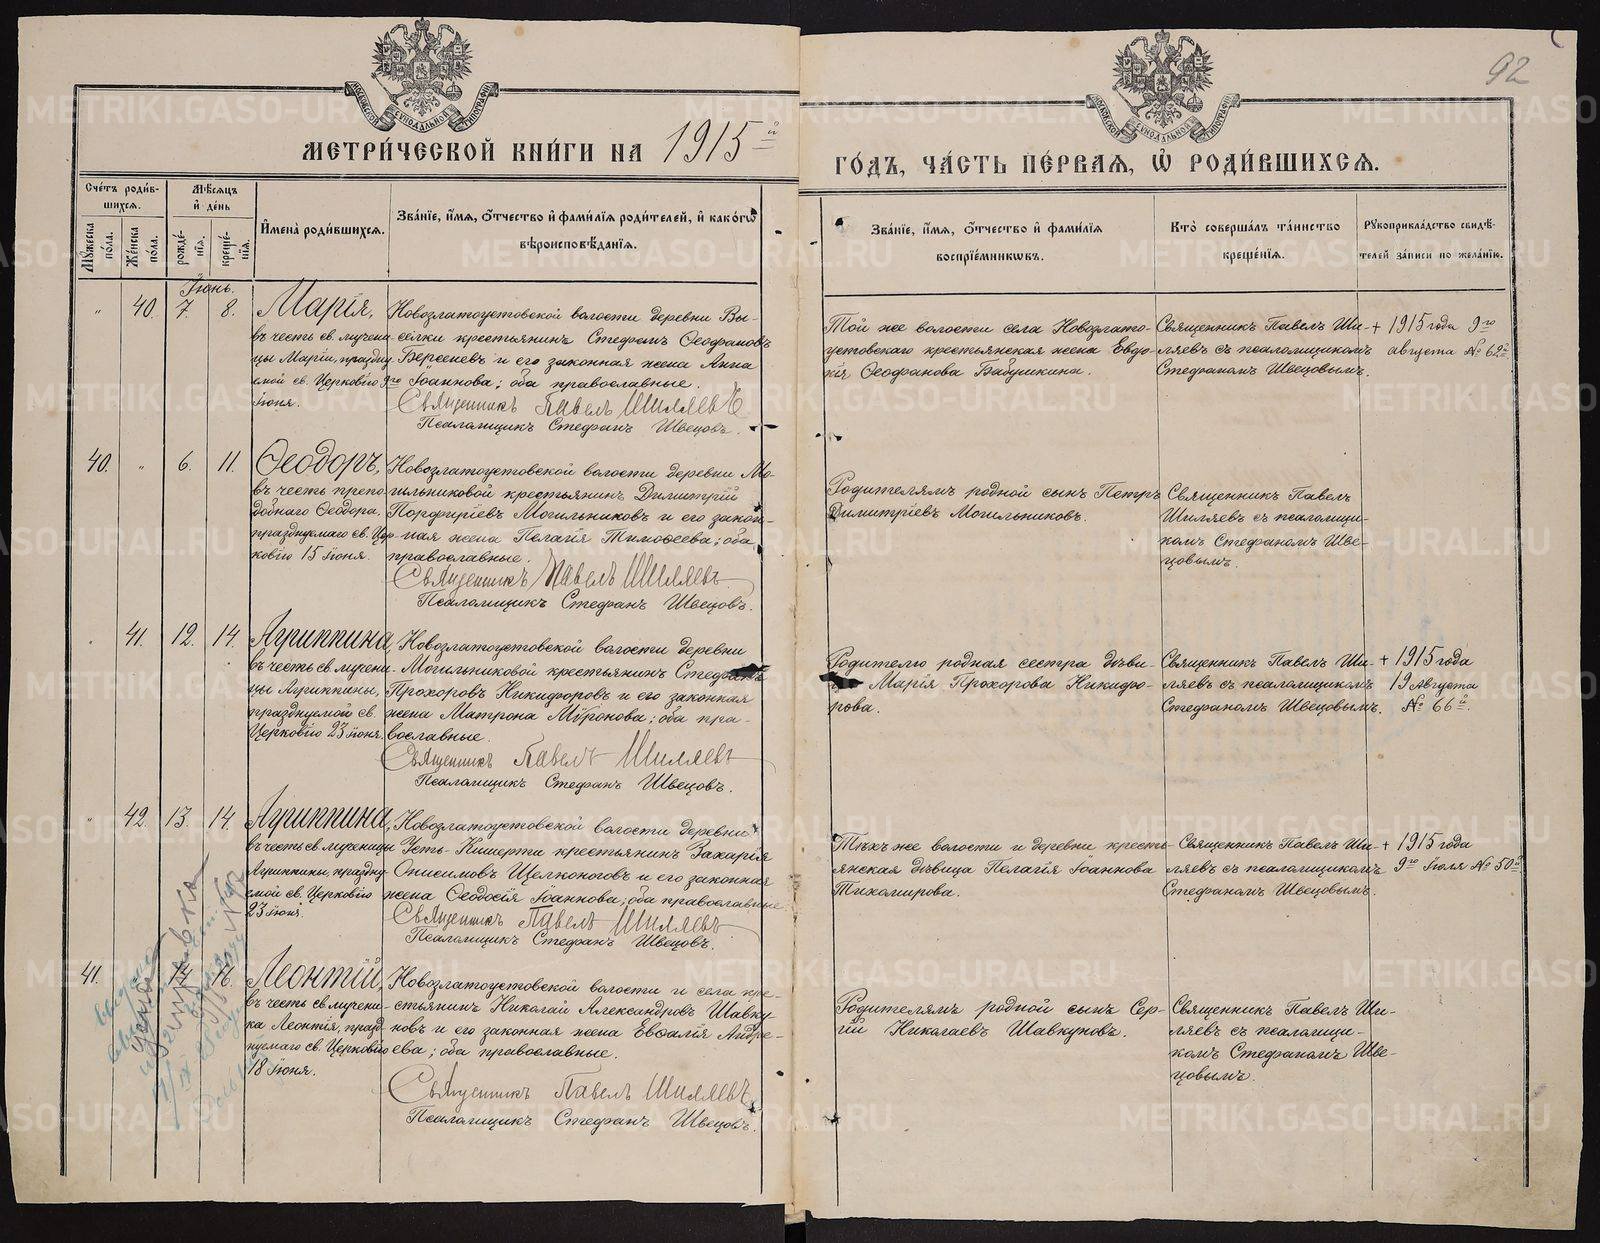 92
МОСКОВСКОЙ СѴНОДАЛЬНОЙ ТИПОГРАФІИ
МОСКОВСКОЙ СѴНОДАЛЬНОЙ ТИПОГРАФІИ
МЕТРИ́ЧЕСКОЙ КНИ́ГИ НА 1915й
ГО́ДЪ, ЧА́СТЬ ПЕ́РВАѦ, Ѽ РОДИ́ВШИХСѦ.
Сче́тъ роди́в-
шихсѧ.
Мꙋ́жеска по́ла.
Же́нска по́ла.
Мѣ́сѧцъ
и҆ де́нь
рожде́-
нїѧ.
креще́-
нїѧ.
И҆мена̀ роди́вшихсѧ.
Зва́нїе, и҆́мѧ, ѻ҆́тчество и҆ фами́лїѧ роди́телей, и҆ како́гѡ
вѣроисповѣ́данїѧ.
Зва́нїе, и҆́мѧ, ѻ҆́тчество и҆ фами́лїѧ
воспрїе́мникѡвъ.
Кто̀ соверша́лъ та́инство
креще́нїѧ.
Рꙋкоприкла́дство свидѣ́-
телей за́писи по жела́нїю.
Іюнь.
" 40. 7. 8.
Марія,
въ честь св. мучени-
цы Маріи, праздну-
емой св. Церковію 9го
Іюня.
Новозлатоустовской волости деревни Вы-
сѣлки крестьянинъ Стефанъ Ѳеофановъ
Берсеневъ и его законная жена Анна
Іоаннова; оба православные.
Священникъ Павелъ Шиляевъ
Псаломщикъ Стефанъ Швецовъ.
Той же волости села Новозлато-
устовскаго крестьянская жена Евдо-
кія Ѳеофанова Бабушкина.
Священникъ Павелъ Ши-
ляевъ съ псаломщикомъ
Стефаномъ Швецовымъ.
+ 1915 года 9го
августа № 62й
40. " 6. 11.
Ѳеодоръ,
въ честь препо-
добнаго Ѳеодора,
празднуемаго св. Цер-
ковію 15 Іюня.
Новозлатоустовской волости деревни Мо-
гильниковой крестьянинъ Димитрій
Порфиріевъ Могильниковъ и его закон-
ная жена Пелагія Тимоѳеева; оба
православные.
Священникъ Павелъ Шиляевъ
Псаломщикъ Стефанъ Швецовъ.
Родителямъ родной сынъ Петръ
Димитріевъ Могильниковъ.
Священникъ Павелъ
Шиляевъ съ псаломщи-
комъ Стефаномъ Шве-
цовымъ.
" 41. 12. 14.
Агриппина,
въ честь св. мучени-
цы Агриппины,
празднуемой св.
Церковію 23 Іюня.
Новозлатоустовской волости деревни
Могильниковой крестьянинъ Стефанъ
Прохоровъ Никифоровъ и его законная
жена Матрона Мѵронова; оба пра-
вославные.
Священникъ Павелъ Шиляевъ
Псаломщикъ Стефанъ Швецовъ.
Родителю родная сестра дѣви-
Марія Прохорова Никифо-
рова.
Священникъ Павелъ Ши-
ляевъ съ псаломщикомъ
Стефаномъ Швецовымъ.
+ 1915 года
19 Августа
№ 66й.
" 42. 13. 14.
Агриппина,
въ честь св. мученицы
Агриппины, праздну-
емой св. Церковію
23 Іюня.
Новозлатоустовской волости деревни
Усть-Кишерти крестьянинъ Захарія
Онисимовъ Щелконоговъ и его законная
жена Ѳеодосія Іоаннова; оба православные.
Священникъ Павелъ Шиляевъ
Псаломщикъ Стефанъ Швецовъ.
Тѣхъ же волости и деревни кресть-
янская дѣвица Пелагія Іоаннова
Тихомирова.
Священникъ Павелъ Ши-
ляевъ съ псаломщикомъ
Стефаномъ Швецовымъ.
+ 1915 года
9го Іюля № 50й
41. 14. 16.
Леонтій,
въ честь св. мучени-
ка Леонтія, празд-
нуемаго св. Церковію
18 Іюня.
Новозлатоустовской волости и села кре-
стьянинъ Николай Александровъ Шавку-
новъ и его законная жена Евѳалія Андре-
ева; оба православные.
Священникъ Павелъ Шиляевъ
Псаломщикъ Стефанъ Швецовъ.
Родителямъ родной сынъ Сер-
гій Николаевъ Шавкуновъ.
Священникъ Павелъ Ши-
ляевъ съ псаломщи-
комъ Стефаномъ Шве-
цовымъ.
METRIKI.GASO-URAL.RU